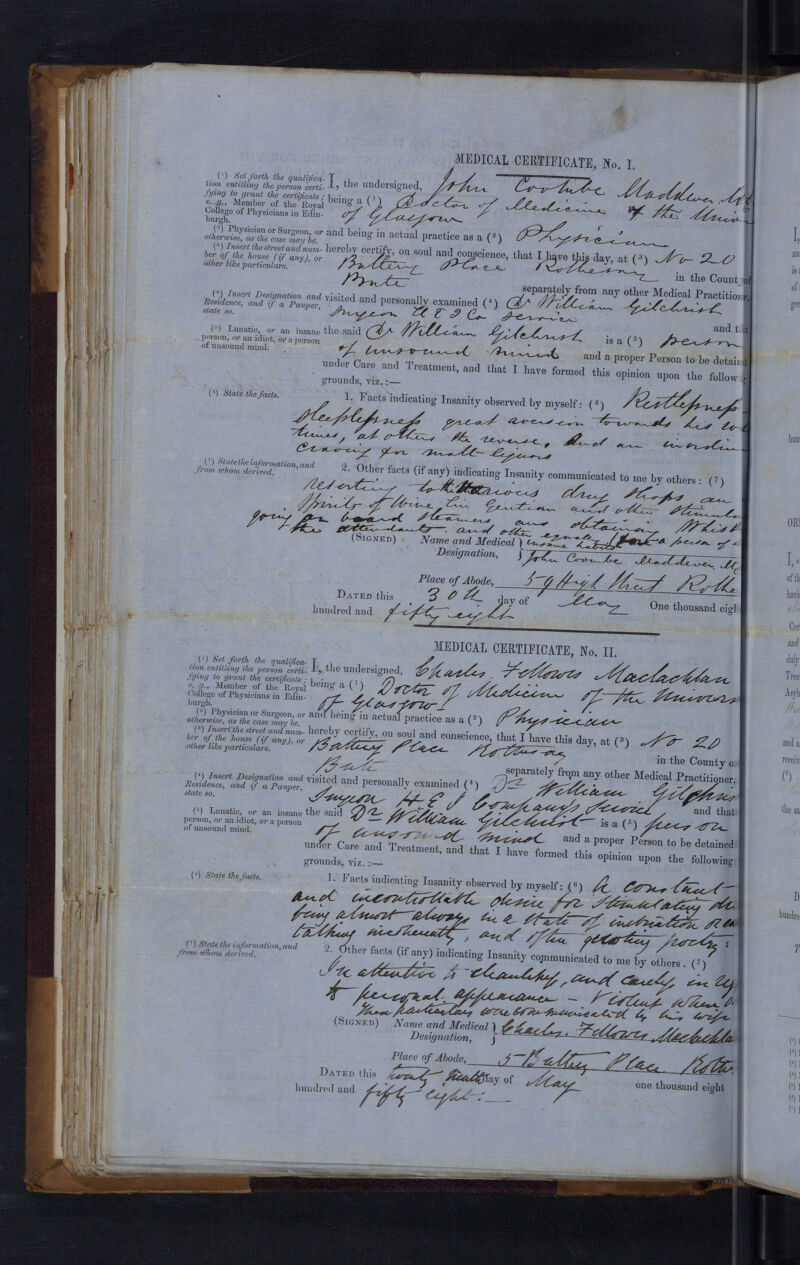 MEDICAL CERTIFICATE, No. I.
(1) Set forth the qualification entitling the person certifying to grant the certificate; e. g., Member of the Royal College of Physicians in Edinburgh.
I, the undersigned, John Coombe Maddever M
being a (1) Doctor of Medicine of the Univer
of Glasgow
(2) Physician or Surgeon, or otherwise, as the case may be.
and being in actual practice as a (2) Physician
(3) Insert the street and number of the house (if any), or other like particulars.
hereby certify, on soul and conscience, that I have this day, at (3) No 20
Battery Place Rothesay in the County of
Bute separately from any other Medical Practitioner,
(4) Insert Designation and Residence, and if a Pauper, state so.
visited and personally examined (4) Dr William Gilchrist
Surgeon H E I Co Service and that
(5) Lunatic, or an insane person, or an idiot, or a person of unsound mind.
the said Dr William Gilchrist is a (5) person
of unsound mind and a proper Person to be detained
under Care and Treatment, and that I have formed this opinion upon the follow
grounds, viz.:—
(6) State the facts.
1. Facts indicating Insanity observed by myself: (6) Restlessness
Sleeplessness great aversion towards his
times, at others the reverse, And an inordin
craving for malt liquors
(7) State the information, and from whom derived.
2. Other facts (if any) indicating Insanity communicated to me by others: (7)
resorting to various drug shops an
Spirits of Wine Tin Gentian and other Stimula
going on board Steamers and obtaining Whisk
the attendants and other equally
insane habits a person of
(SIGNED) Name and Medical Designation, John Coombe Maddever, M
Place of Abode, 59 High Street Rothe
DATED this 30th day of May One thousand eigh
hundred and fifty eight
MEDICAL CERTIFICATE, No. II.
(1) Set forth the qualification entitling the person certifying to grant the certificate; e. g., Member of the Royal College of Physicians in Edinburgh.
I, the undersigned, Charles Fellowes Maclachlan
being a (1) Doctor of Medicine of the Univers
of Glasgow
(2) Physician or Surgeon, or otherwise, as the case may be.
and being in actual practice as a (2) Physician
(3) Insert the street and number of the house (if any), or other like particulars.
hereby certify, on soul and conscience, that I have this day, at (3) No 20
Battery Place Rothesay in the County o
Bute separately from any other Medical Practitioner,
(4) Insert Designation and Residence, and if a Pauper, state so.
visited and personally examined (4) Dr William Gilchris
Surgeon H E I Company's Service and that
(5) Lunatic, or an insane person, or an idiot, or a person of unsound mind.
the said Dr William Gilchrist is a (5) person
of unsound mind and a proper Person to be detained
under Care and Treatment, and that I have formed this opinion upon the following
grounds, viz.:—
(6) State the facts.
1. Facts indicating Insanity observed by myself: (6) A constant
and incontrollable desire for Stimulating
being almost always in a state of inebriation
talking incoherently, and often quoting poetry
(7) State the information, and from whom derived.
2. Other facts (if any) indicating Insanity communicated to me by others. (7)
In attentive to cleanliness, and careless in
to personal appearance – Violent when
These particulars were communicated by his wife
(SIGNED) Name and Medical Designation, Charles. Fellowes Maclachla
Place of Abode, 5 Battery Place Rothe
DATED this day of May one thousand eight
hundred and fifty eight.